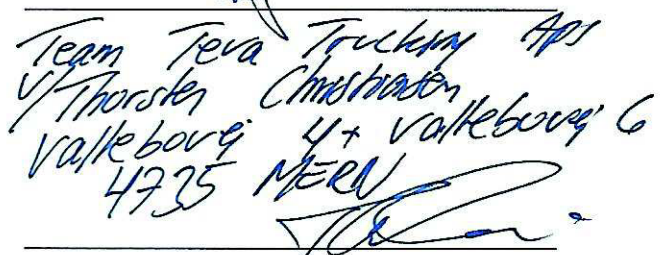 Team Teva Trucking ApS
v/Thorsten Christiansen
Vallebovej 4 + Vallebovej 6
4735 MERN